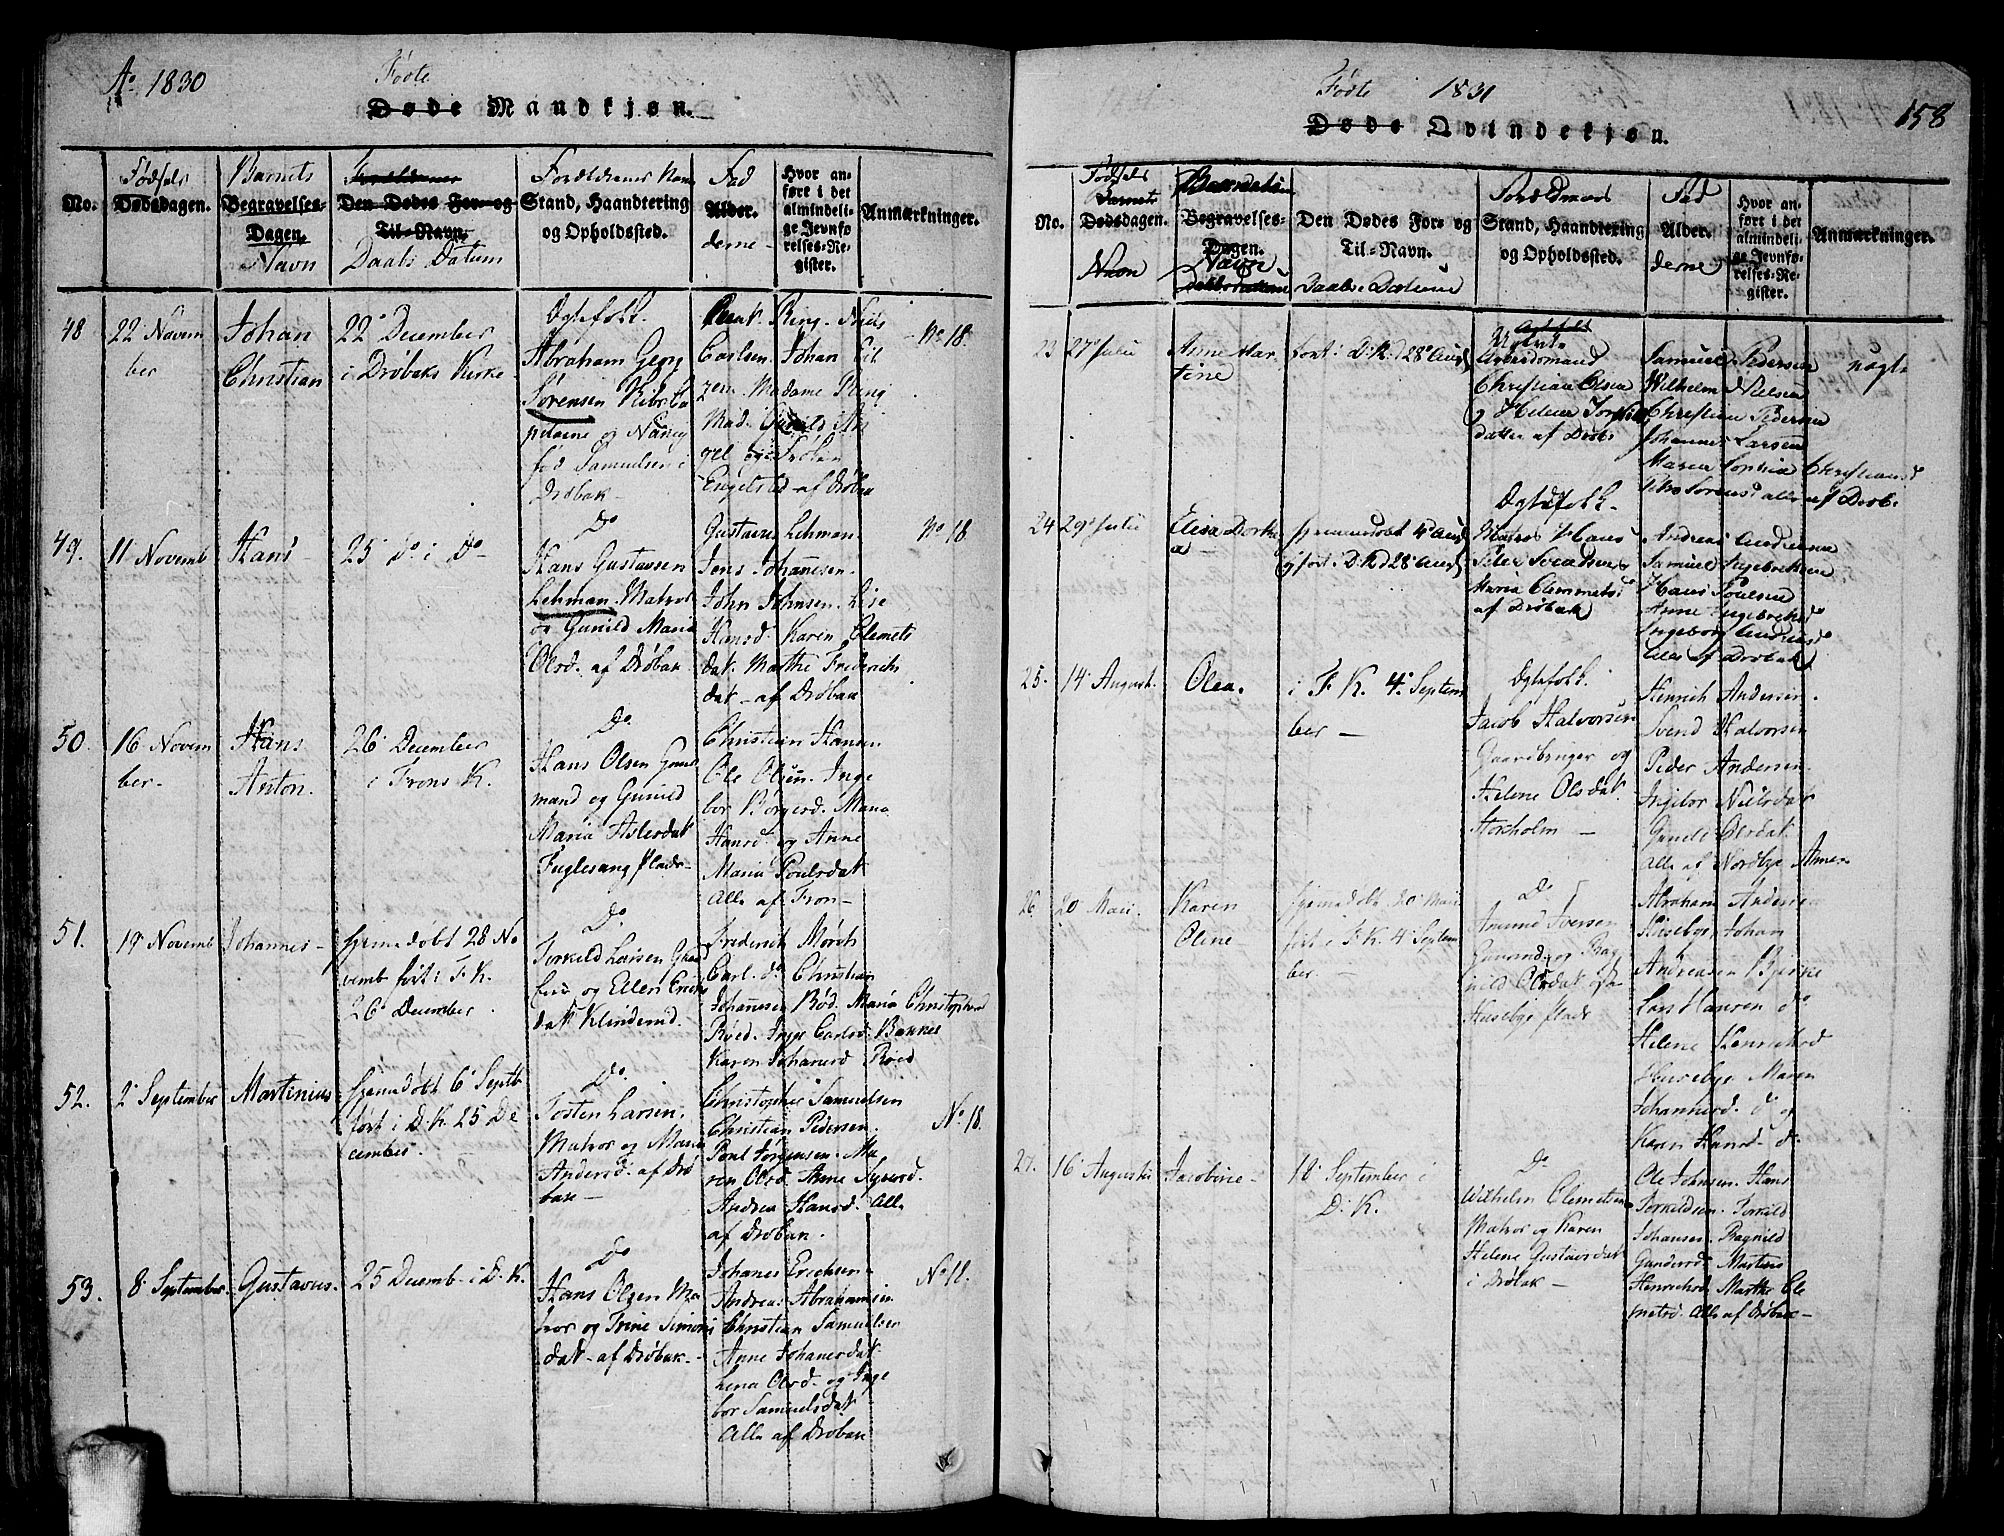 Ao 1830
Fødte
Døde Mandkjøn.
No.
Fødsels
Dødsdagen.
Barnets
Begravelses-
Dagen.
Navn
Forældrenes
Den Dødes For- og
Til-Navn.
Daabs Datum
Forældrenes Navn
Stand, Haandtering
og Opholdssted.
Fad
Alder.
derne
Hvor an-
ført i det
almindeli-
ge Jevnfø-
relses-Re-
gister.
Anmærkninger.
48
22 Novem
ber
Johan
Christian
22 December
i Drøbaks Kirke
Ægtefolk.
Abraham Georg
Sørensen
og Nancy
fød Samuelsen i
Drøbak
Ring. Niels
Carlsen. Johan
Madame Ring
Mad. Gunild
Engelsted af Drøbak
No 18.
49.
11 Novemb
Hans
25 Do i Do
Do
Hans Gustavsen
Lehman. Matros
og Gunild Maria
Olsd. af Drøbak
Gustaves Lehman.
Jens Johansen.
John Johnsen. Lise
Hansd. Karen Clemets
dat. Marthe Frederichs
dat. af Drøbak
No 18
50.
16 Novem
ber
Hans
Anton.
26 December
i Frons K.
Do
Hans Olsen Gaard
mand og Gunild
Maria Aslesdat
Fuglesang Plads
Christian Hansen
Ole Olsen. Inge
bor Børgerd. Maria
Hansd. og Anne
Maria Poulsdat
Alle af Fron
51.
19 Novemb
Johannes
hjemedøbt 28 No
vemb ført i F. K.
26 December.
Do
Torkild Larsen
og Ellen Erichs
dat Klinderud.
Frederich Mørch
Carl do Christian
Johannesen Rød. Maria Christophersd
Røed. Inge Carlsd.
Karen Johanesd Røed
52.
2 September
Martinius
hjemedøbt 6 Septb
ført i D. K. 25 De
cember.
Do
Tosten Larsen.
Matros og Maria
Andersd. af Drø
bak
Christopher Samuelsen
Christian Pedersen.
Poul Jørgensen. Ma
ren Olsd. Anne
Andrea Hansd. Alle
af Drøbak.
No 18.
53.
8 September
Gustavus.
25 Decemb i D. K.
Do
Hans Olsen Ma
tros og Trine Simons
dat af Drøbak
Johanes Erichsen
Andreas Abrahamsen
Christian Samuelsen
Anne Johanesdat.
Lena Olsd. og Inge
bor Samuelsdat
Alle af Drøbak
No 18.
Fødte 1831
158
Døde Qvindekjøn.
No.
Fødsels
Barnets
Dødsdagen.
Navn
Begravelses-
Dagen.
Navn
Den Dødes For- og
Til-Navn.
Daabs Datum
Forældrenes
Stand, Haandtering
og Opholdssted.
Fad
Alder.
derne
Hvor an-
ført i det
almindeli-
ge Jevnfø-
relses-Re-
gister.
Anmærkninger.
23
27 Julii
Anne Mar
tine
ført i D. K. d 28 Aug
Ægtefolk
Arbeidsmand
Christian Olsen
og Helene
datter af Drøb
Samuel Pedersen
Wilhelm Nielsen
Christian Pedersen
Johannes Larsen
Maren Sophia Christiansd
alle af Drøb.
uægte
24
29 Julii
Elisa Dorthe
a
hjemmedøbt 4 Aug
og ført i D. K. d 28 Aug
Ægtefolk.
Matros Hans
Peter Svendsen
Maria Clemmets
af Drøbak
Andreas Andersen
Samuel Ingebretsen
Hans Poulsen
Anne Ingebretsd
Ingeborg Andreasd
alle af Drøbak
25.
14 August.
Olea.
i F. K. 4 Septem
ber
Ægtefolk.
Jacob Halvorsen
Gaardbruger og
Helene Olsdat
Storholm
Henrich Andersen.
Svend Halvorsen
Peder Andersen.
Ingebor Nielsdat
Gunild Olsdat
alle af Nordbye
26.
20 Maii.
Karen
Oline
hjemedøbt 20 Maii
ført i F. K. 4 Septem
ber.
Do
Amund Iversen
Gaardmd og Rag
nild Olsdat
Husebye plads
Abraham Andersen
Husebye, Johan
Andreasen Bjerke
Lars Hansen do
Helene Henrichsd
Husebye Maren
Johannesd. do og
Karen Hansd. do
27.
16 Augusti
Jacobine
18 September i
D. K.
Do
Wilhelm Clemetsen
Matros og Karen
Helene Gustavsdat
i Drøbak
Ole Johnsen. Hans
Torkildsen. Torkild
Johansen. Ragnild
Gundersd. Martine
Henrichsd Marthe Cle
metsd. Alle af Drøbak